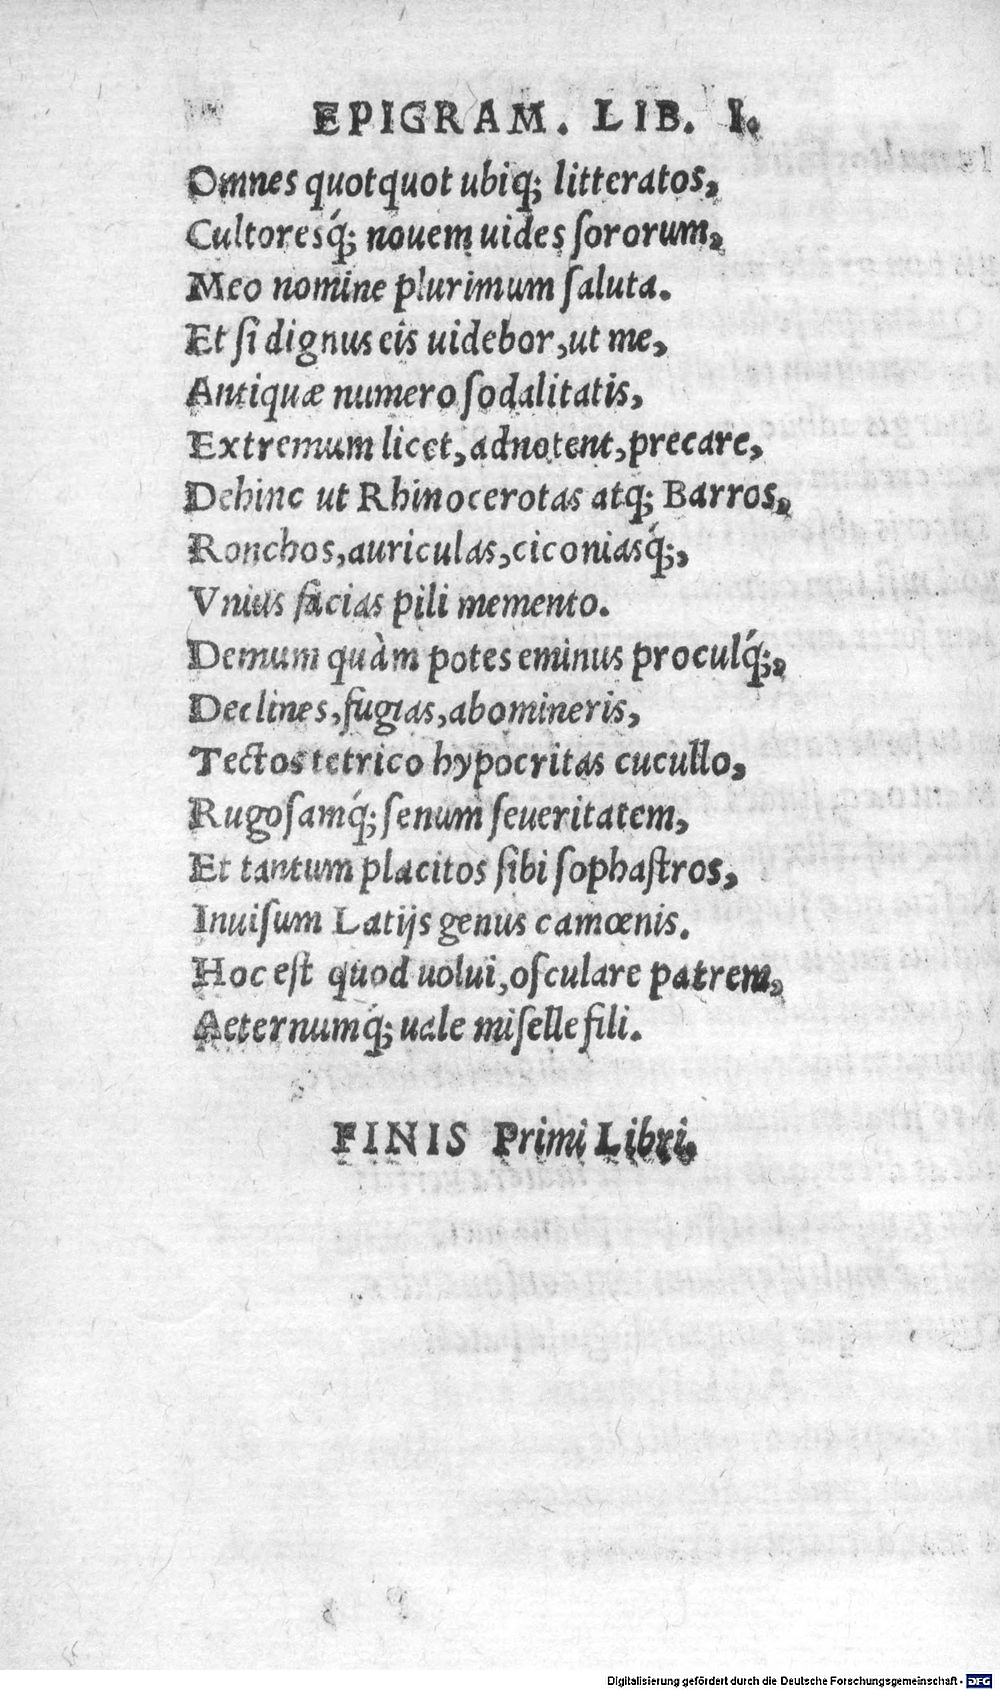 EPIGRAM. LIB. I.
Omnes quotquot ubiq; litteratos,
Cultoresq́; nouem uides ſororum,
Meo nomine plurimum ſaluta.
Et ſi dignus eis uidebor, ut me,
Antiquæ numero ſodalitatis,
Extremum licet, adnotent, precare,
Dehinc ut Rhinocerotas atq; Barros,
Ronchos, auriculas, ciconiasq́;,
Vnius facias pili memento.
Demum quàm potes eminus proculq́;,
Declines, fugias, abomineris,
Tectos tetrico hypocritas cucullo,
Rugoſamq́; ſenum ſeueritatem,
Et tantum placitos ſibi ſophaſtros,
Inuiſum Latijs genus camœnis.
Hoc eſt quod uolui, oſculare patrem,
Aeternumq́; uale miſelle fili.
FINIS Primi Libri.
Digitalisierung gefördert durch die Deutsche Forschungsgemeinschaft - DFG